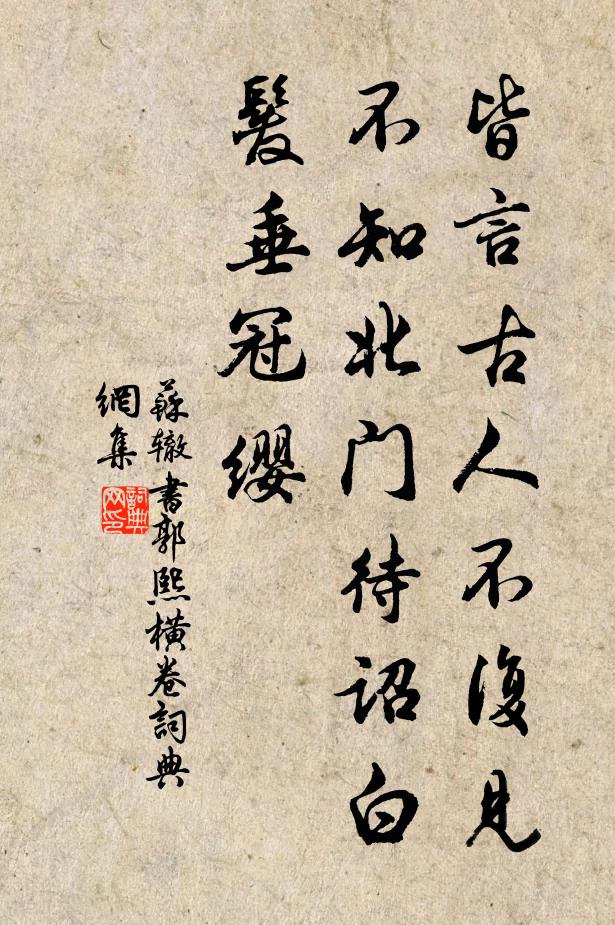 皆言古人不復見
不知北門待詔白
髮垂冠缨
蘇辙書郭熙橫卷詞典
網集
詞典
网印